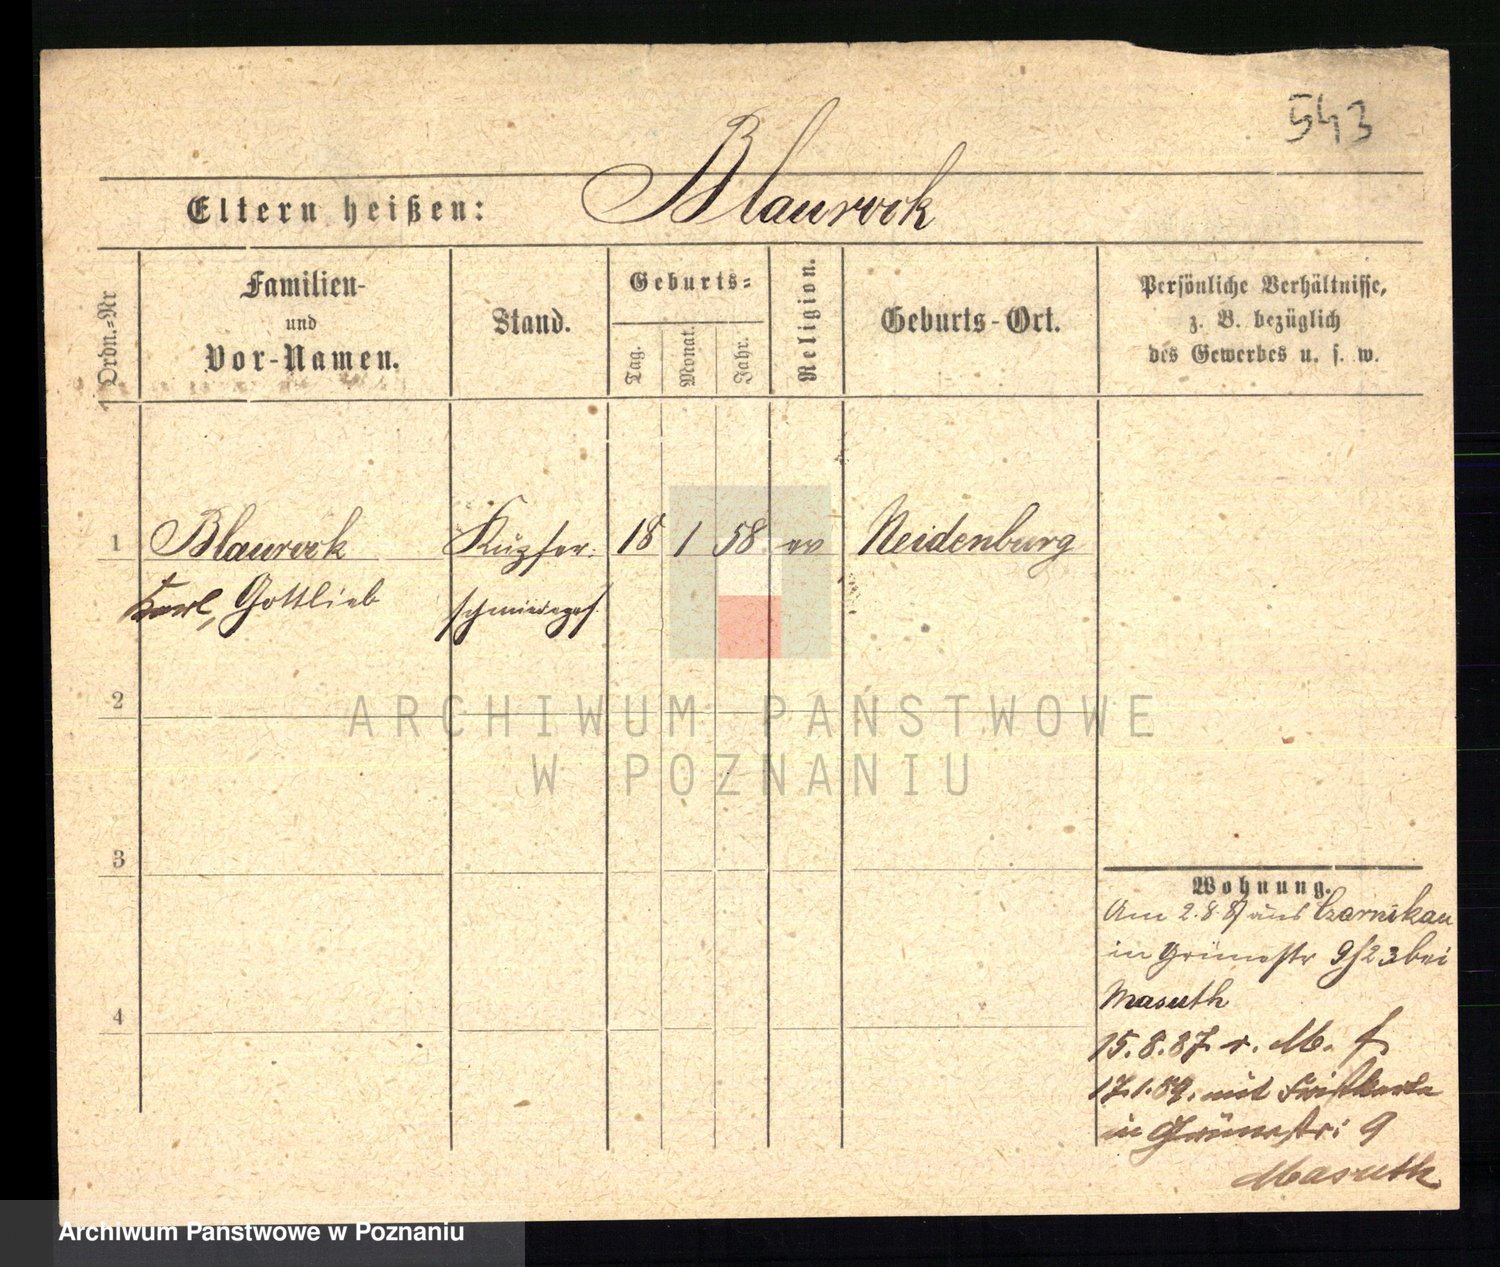 543
Eltern heißen: Blaurock
Ordn.=Nr
Familien-
und
Vor-Namen.
Stand.
Geburts=
Tag.
Monat.
Jahr.
Religion.
Geburts-Ort.
Persönliche Verhältnisse,
z. B. bezüglich
des Gewerbes u. s. w.
1 Blaurock Kupfer- 18 1 58 ev Neidenburg
Karl, Gottlieb schmiedeges.
2
3
4
ARCHIWUM PAŃSTWOWE
W POZNANIU
Wohnung.
Am 2.8.87 aus Czarnikau
in Grünestr 9/23 bei
Masuth
15.8.87. r. M. f
17.1.89. mit
in Grünestr: 9
Masuth
Archiwum Państwowe w Poznaniu